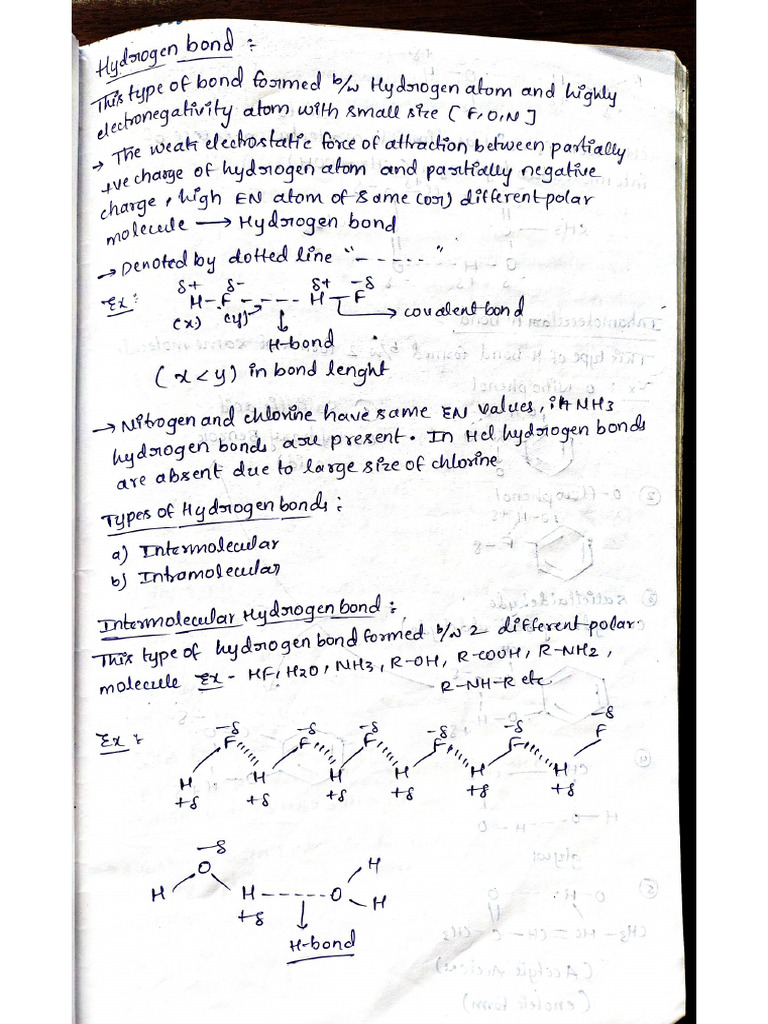 Hydrogen bond :
This type of bond formed b/w Hydrogen atom and highly
electronegativity atom with small size [F,O,N]
→ The weak electrostatic force of attraction between partially
+ve charge of hydrogen atom and partially negative
charge, high EN atom of same (or) different polar
molecule → Hydrogen bond
→ Denoted by dotted line "-----"
Ex: δ+ δ- δ+ -δ
H-F ---- H-F → covalent bond
(x) (y)
H-bond
(x<y) in bond lenght
→ Nitrogen and chlorine have same EN values, in NH3
hydrogen bonds are present. In Hcl hydrogen bonds
are absent due to large size of chlorine
Types of Hydrogen bonds :
a) Intermolecular
b) Intramolecular
Intermolecular Hydrogen bond :
This type of hydrogen bond formed b/w 2 different polar
molecule Ex - HF, H2O, NH3, R-OH, R-COOH, R-NH2,
R-NH-R etc.
Ex :
-δ -δ -δ -δ -δ -δ
F F F F F F
H H H H H H
+δ +δ +δ +δ +δ +δ
-δ
O H
H H ------ O H
+δ
H-bond